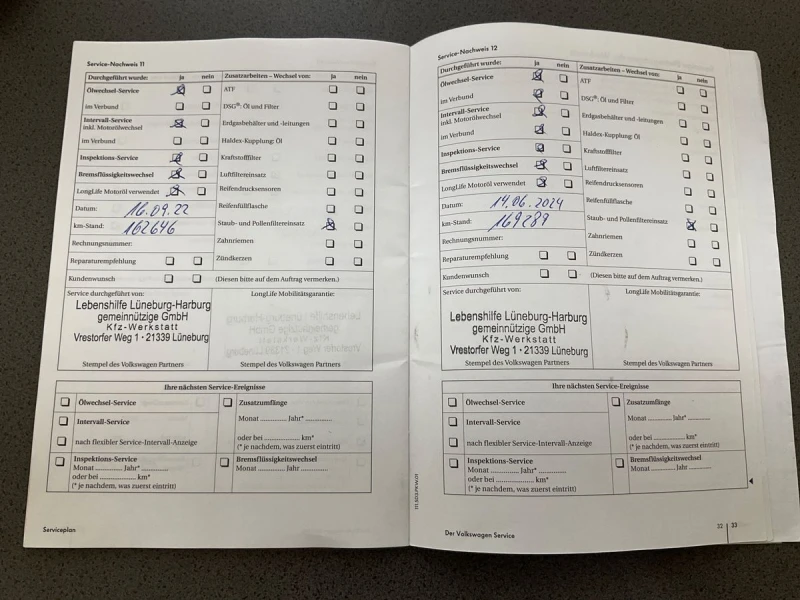 Service-Nachweis 11
Durchgeführt wurde: ja nein Zusatzarbeiten – Wechsel von: ja nein
Ölwechsel-Service ATF
im Verbund DSG®: Öl und Filter
Intervall-Service
inkl. Motorölwechsel Erdgasbehälter und -leitungen
im Verbund Haldex-Kupplung: Öl
Inspektions-Service Kraftstofffilter
Bremsflüssigkeitswechsel Luftfiltereinsatz
LongLife Motoröl verwendet Reifendrucksensoren
Datum: 16.09.22 Reifenfüllflasche
km-Stand: 162646 Staub- und Pollenfiltereinsatz
Rechnungsnummer: Zahnriemen
Reparaturempfehlung Zündkerzen
Kundenwunsch (Diesen bitte auf dem Auftrag vermerken.)
Service durchgeführt von: LongLife Mobilitätsgarantie:
Lebenshilfe Lüneburg-Harburg
gemeinnützige GmbH
Kfz-Werkstatt
Vrestorfer Weg 1 · 21339 Lüneburg
Stempel des Volkswagen Partners Stempel des Volkswagen Partners
Ihre nächsten Service-Ereignisse
Ölwechsel-Service Zusatzumfänge
Intervall-Service Monat ............. Jahr* ..............
nach flexibler Service-Intervall-Anzeige oder bei ............. km*
(* je nachdem, was zuerst eintritt)
Inspektions-Service Bremsflüssigkeitswechsel
Monat .......... Jahr* .............. Monat ............. Jahr ..............
oder bei ..................... km*
(* je nachdem, was zuerst eintritt)
Serviceplan
Service-Nachweis 12
Durchgeführt wurde: ja nein Zusatzarbeiten – Wechsel von: ja nein
Ölwechsel-Service ATF
im Verbund DSG®: Öl und Filter
Intervall-Service
inkl. Motorölwechsel Erdgasbehälter und -leitungen
im Verbund Haldex-Kupplung: Öl
Inspektions-Service Kraftstofffilter
Bremsflüssigkeitswechsel Luftfiltereinsatz
LongLife Motoröl verwendet Reifendrucksensoren
Datum: 14.06.2024 Reifenfüllflasche
km-Stand: 169289 Staub- und Pollenfiltereinsatz
Rechnungsnummer: Zahnriemen
Reparaturempfehlung Zündkerzen
Kundenwunsch (Diesen bitte auf dem Auftrag vermerken.)
Service durchgeführt von: LongLife Mobilitätsgarantie:
Lebenshilfe Lüneburg-Harburg
gemeinnützige GmbH
Kfz-Werkstatt
Vrestorfer Weg 1 · 21339 Lüneburg
Stempel des Volkswagen Partners Stempel des Volkswagen Partners
Ihre nächsten Service-Ereignisse
Ölwechsel-Service Zusatzumfänge
Intervall-Service Monat ............. Jahr* ..............
nach flexibler Service-Intervall-Anzeige oder bei ............. km*
(* je nachdem, was zuerst eintritt)
Inspektions-Service Bremsflüssigkeitswechsel
Monat .......... Jahr* .............. Monat ............. Jahr ..............
oder bei ..................... km*
(* je nachdem, was zuerst eintritt)
Der Volkswagen Service
32 33